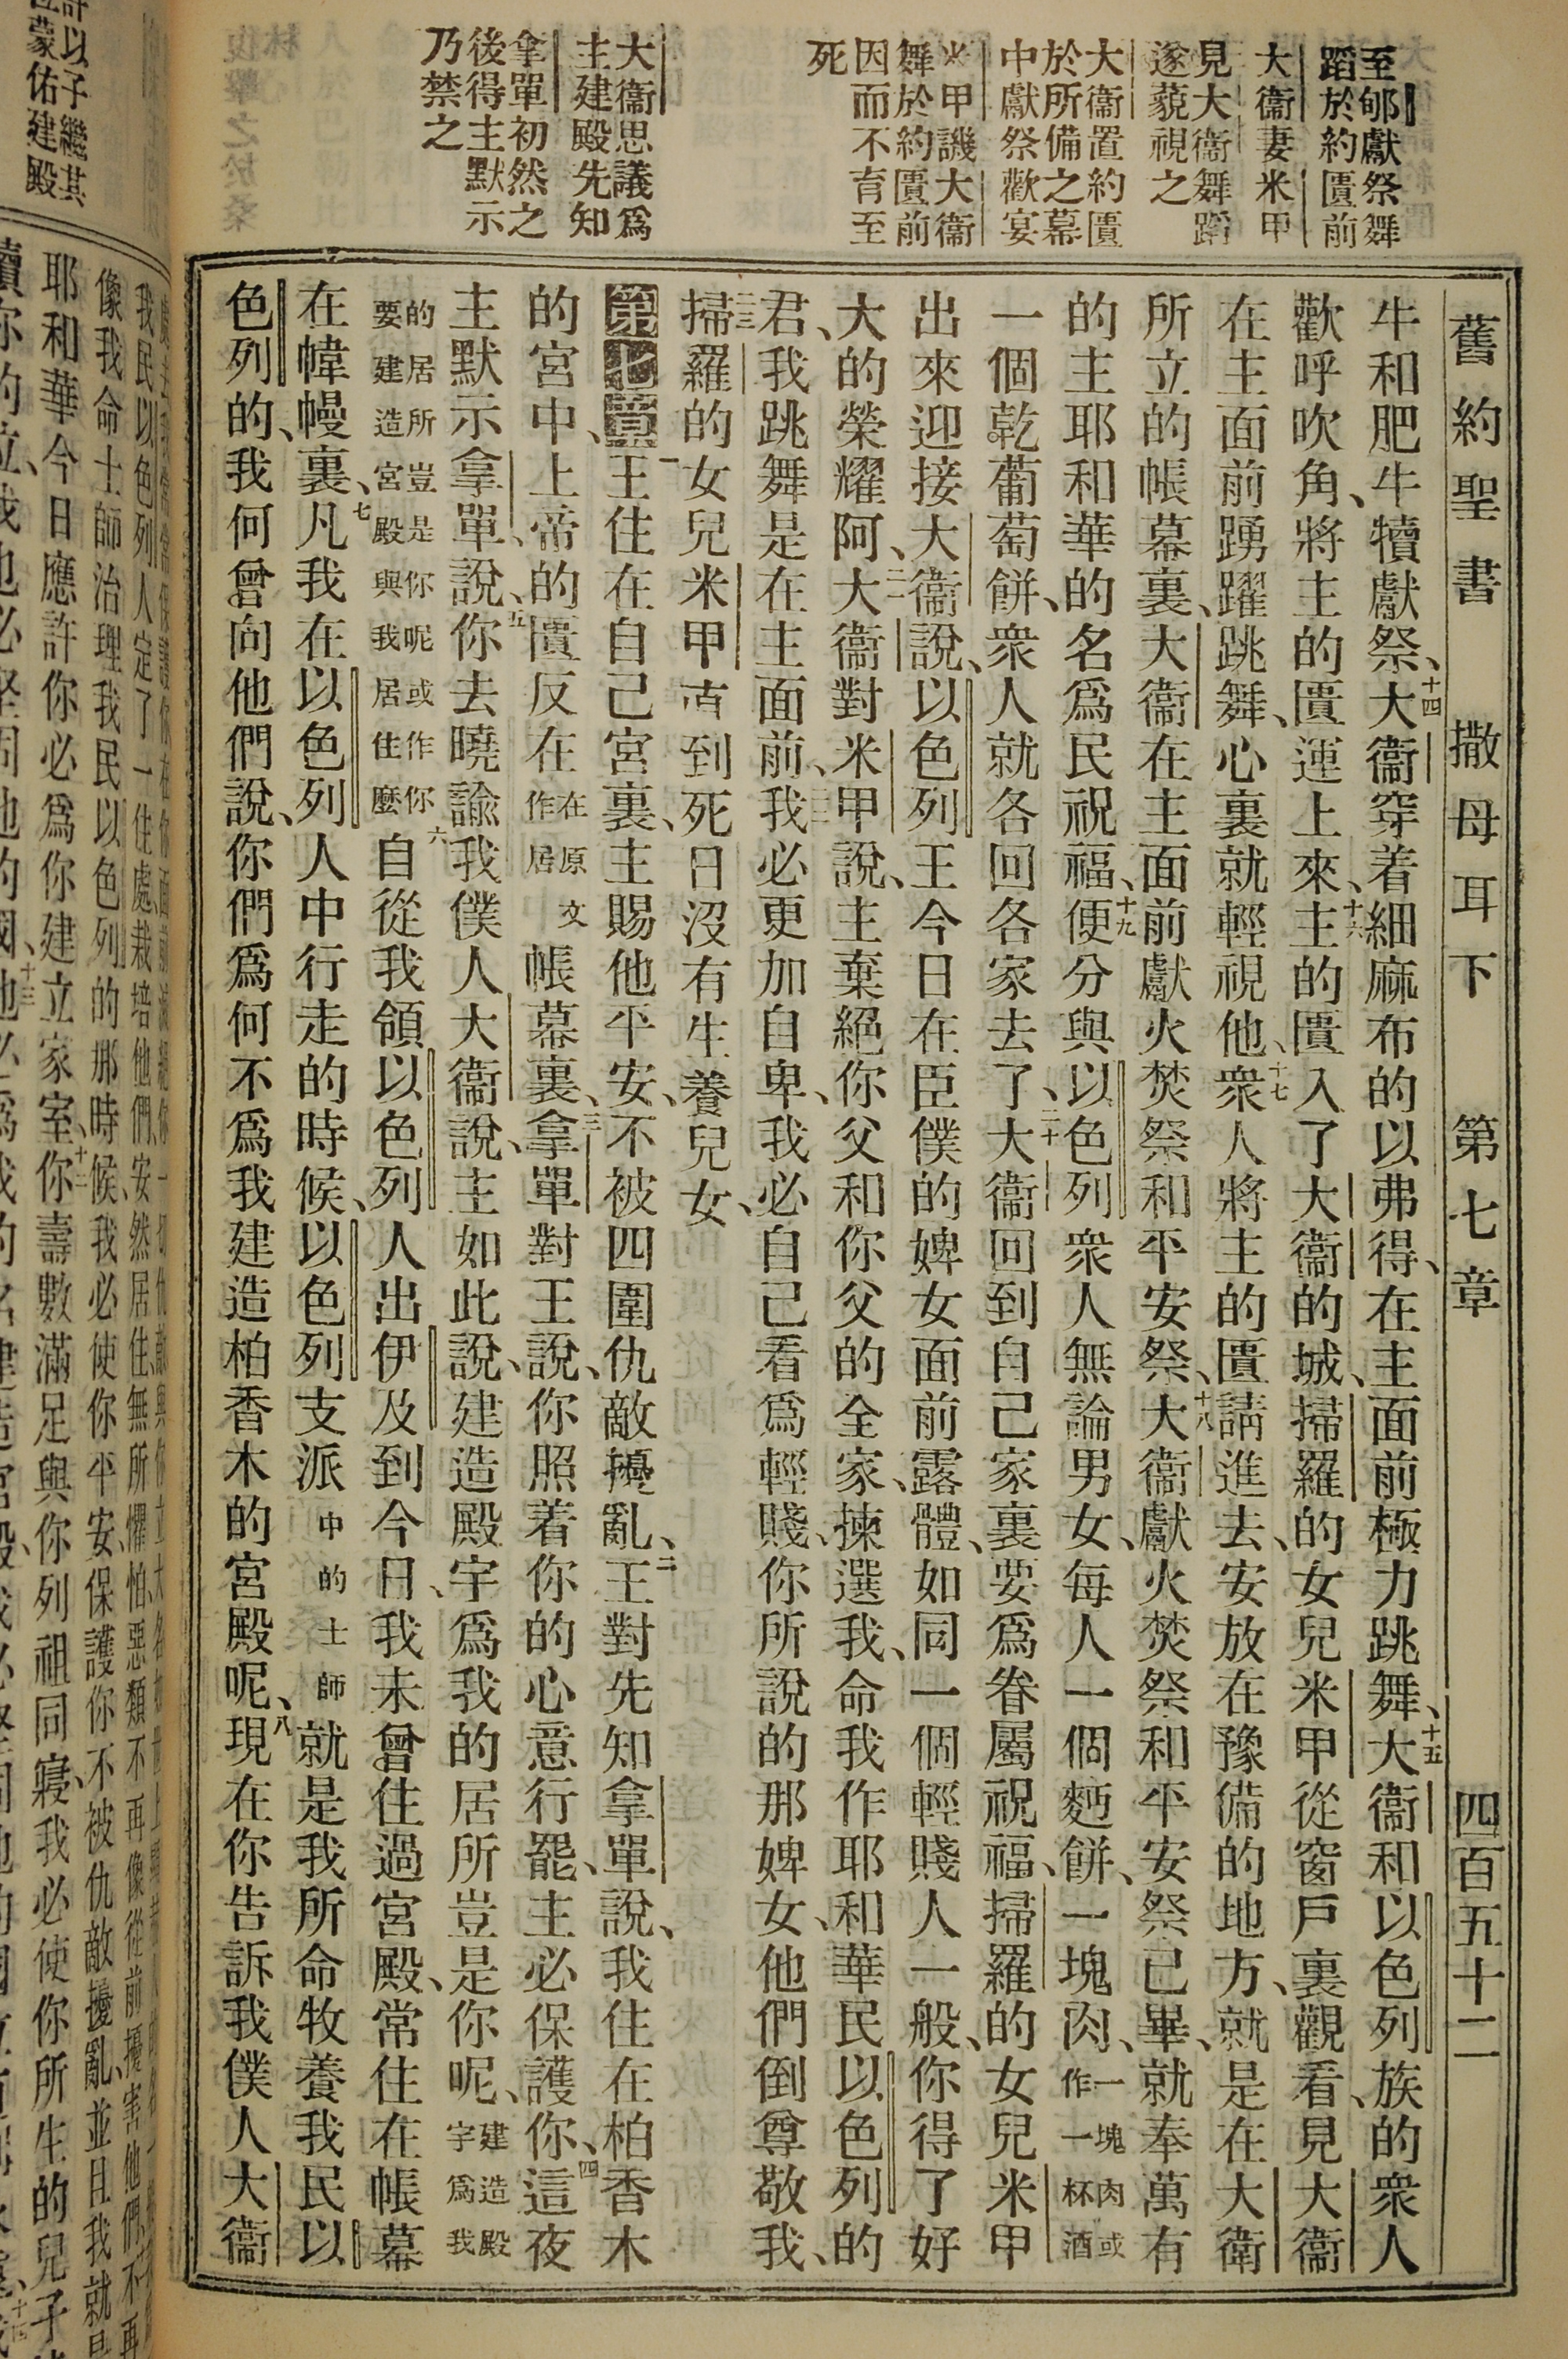 舊約聖書 撒母耳下 第七章 四百五十二
至郇獻祭舞
蹈於約匱前
大衞妻米甲
見大衞舞蹈
遂藐視之
大衞置約匱
於所備之幕
中獻祭歡宴
米甲譏大衞
舞於約匱前
因而不育至
死
大衞思議爲
主建殿先知
拿單初然之
後得主默示
乃禁之
牛和肥牛犢獻祭、十四大衞穿着細麻布的以弗得、在主面前極力跳舞、十五大衞和以色列族的衆人
歡呼吹角、將主的匱運上來、十六主的匱入了大衞的城、掃羅的女兒米甲從窗戶裏觀看、見大衞
在主面前踴躍跳舞、心裏就輕視他、十七衆人將主的匱請進去、安放在豫備的地方、就是在大衛
所立的帳幕裏、大衞在主面前獻火焚祭和平安祭、十八大衞獻火焚祭和平安祭已畢、就奉萬有
的主耶和華的名爲民祝福、十九便分與以色列衆人無論男女、每人一個麪餅、一塊肉、一塊肉或作一杯酒
一個乾葡萄餅、衆人就各回各家去了、二十大衞回到自己家裏要爲眷屬祝福、掃羅的女兒米甲
出來迎接大衞說、以色列王今日在臣僕的婢女面前露體、如同一個輕賤人一般、你得了好
大的榮耀阿、二一大衞對米甲說、主棄絕你父和你父的全家、揀選我、命我作耶和華民以色列的
君、我跳舞是在主面前、二二我必更加自卑、我必自己看爲輕賤、你所說的那婢女、他們倒尊敬我、
二三掃羅的女兒米甲直到死日沒有生養兒女、
第七章 一王住在自己宮裏、主賜他平安、不被四圍仇敵擾亂、二王對先知拿單說、我住在柏香木
的宮中、上帝的匱反在在原文作居帳幕裏、三拿單對王說、你照着你的心意行罷、主必保護你、四這夜
主默示拿單說、五你去曉諭我僕人大衞說、主如此說、建造殿宇爲我的居所豈是你呢、建造殿宇爲我
的居所豈是你呢或作你要建造宮殿與我居住麽六自從我領以色列人出伊及到今日、我未曾住過宮殿、常住在帳幕
在幃幔裏、七凡我在以色列人中行走的時候、以色列支派中的士師就是我所命牧養我民以
色列的、我何曾向他們說、你們爲何不爲我建造柏香木的宮殿呢、八現在你告訴我僕人大衞